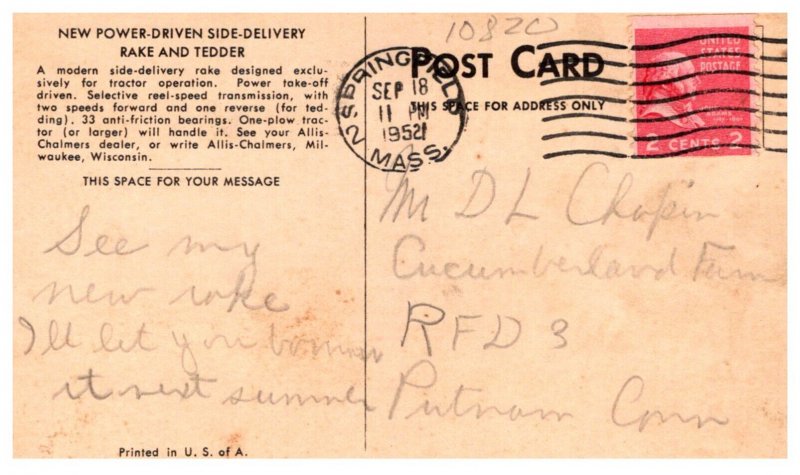 NEW POWER-DRIVEN SIDE-DELIVERY
RAKE AND TEDDER
A modern side-delivery rake designed exclu-
sively for tractor operation. Power take-off
driven. Selective reel-speed transmission, with
two speeds forward and one reverse (for ted-
ding). 33 anti-friction bearings. One-plow trac-
tor (or larger) will handle it. See your Allis-
Chalmers dealer, or write Allis-Chalmers, Mil-
waukee, Wisconsin.
THIS SPACE FOR YOUR MESSAGE
See my
new rake
I'll let you borrow
it next summer
Printed in U. S. of A.
10820
POST CARD
THIS SPACE FOR ADDRESS ONLY
SPRINGFIELD 2
SEP 18
11 PM
1952
MASS.
UNITED
STATES
POSTAGE
ADAMS
2 CENTS 2
Mr D L Chapin
Cucumberland Farm
RFD 3
Putnam Conn